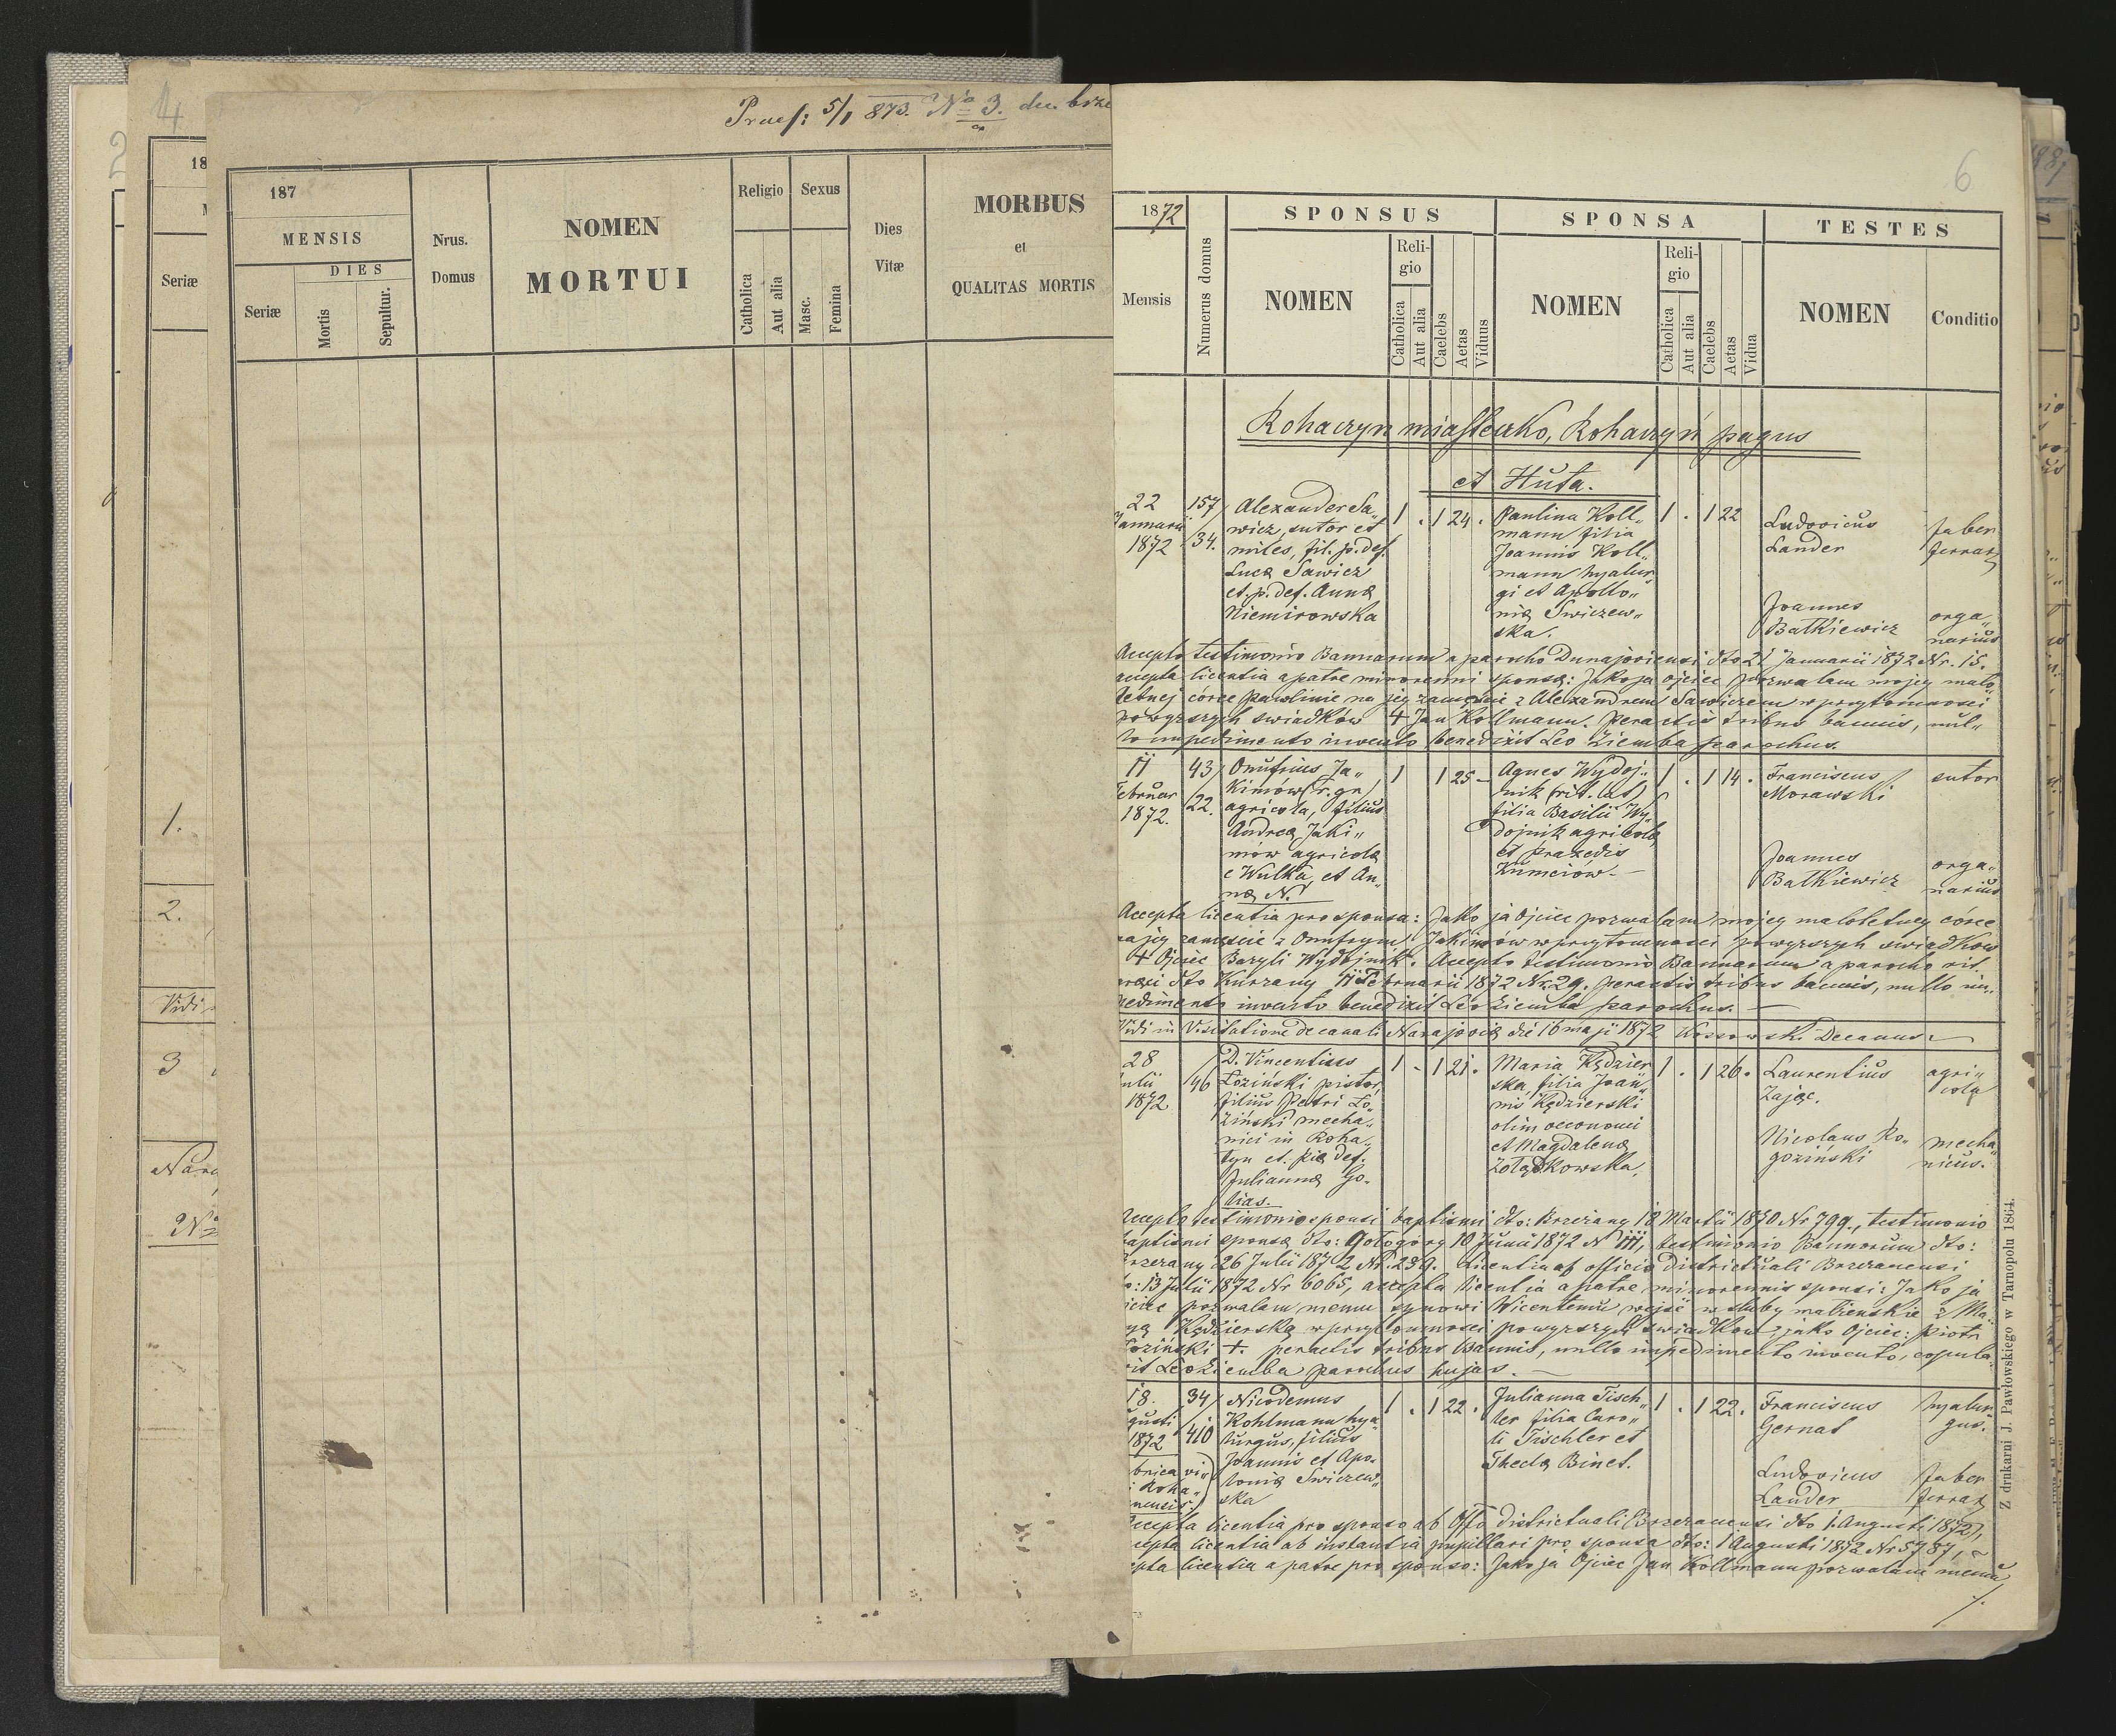 4
2
18
Seriæ
1.
2.
3
Praes: 5/1 873. No 3. du. brze
187
MENSIS
DIES
Seriæ
Mortis
Sepultur.
Nrus.
Domus
NOMEN
MORTUI
Religio
Catholica
Aut alia
Sexus
Masc.
Femina
Dies
Vitæ
MORBUS
et
QUALITAS MORTIS
6
1872
Mensis
Numerus domus
SPONSUS
NOMEN
Reli-
gio
Catholica
Aut alia
Caelebs
Aetas
Viduus
SPONSA
NOMEN
Reli-
gio
Catholica
Aut alia
Caelebs
Aetas
Vidua
TESTES
NOMEN
Conditio
Rohaczyn miasteczko, Rohaczyn pagus
et Huta.
22
Januarii
1872
157/
/34.
Alexander Sa„
wicz, sutor et
miles, fil. p. def.
Lucæ Sawicz
et. p. def. Annæ
Niemirowska
1 . 1 24 .
Paulina Koll„
mann filia
Joannis Koll„
mann hyalur
gi et Apollo„
niæ Swiczew„
ska.
1 . 1 22
Ludovicus
Lander
faber
ferrar
Joannes
Batkiewicz
orga„
narius
Accepto testimonio Bannorum a parocho Dunajoviensi dto 21 Januarii 1872 Nr. 15.
accepta licentia a patre minorenni sponsæ: Jako ja ojciec pozwalam mojej mało„
letnej córce Pawlinie na jej zamęscie z Alexandrem Sawiczem w przytomnosci
powyzszych swiadków + Jan Kollmann. Peractis tribus bannis, nul„
lo impedimento invento benedixit Leo Ziemba parochus.
11
ebruar
1872.
43/
/22.
Onufrius Ja„
kimów (r. gr)
agricola, filius
Andreæ Jaki„
mów agricolæ
e Wulka, et An„
næ N.
1 1 25 –
Agnes Wydoj„
nik (rit. lat)
filia Basilii Wy„
dojnik agricolæ
et Praxedis
Zumciów. –
1 . 1 14 .
Franciscus
Morawski
sutor
Joannes
Batkiewicz
orga„
narius
Accepta licentia pro sponsa: Jako ja Ojciec pozwalam mojej małoletney córce
na jej zamęscie z Onufrym Jakimów w przytomnosci powyzszych swiadków
+ Ojciec Bazyli Wydojnik. Accepto testimonio Bannorum a parocho rit.
græci dto Kurzany 11 Februarii 1872 Nr. 29. peractis tribus bannis, nullo im„
pedimento invento benedixit Leo Ziemba parochus. –
Vidi in Visitatione decanali Narajoviæ die 16 maji 1872 Kossowski Decanus
28
ulii
1872
/46
D. Vincentius
Łoziński pistor,
filius Petri Ło„
ziński mecha„
nici in Roha„
tyn et. piæ def.
Juliannæ Go„
lias.
1 . 1 21.
Maria Kędzier
ska filia Joan„
nis Kędzierski
olim oeconomi
et Magdalenæ
Zołądkowska.
1 . 1 26 .
Laurentius
Zając.
agri„
cola
Nicolaus Ro„
goziński
mecha„
nicus.
Accepto testimonio sponsi baptismi dto: Brzezany 18 Martii 1870 Nr 799., testimonio
baptismi sponsæ dto: Gołogóry 10 Junii 1872 N 111, testimonio Bannorum dto:
rzezany 26 Julii 1872 Nr. 239. licentia ab officio districtuali Brzezanensi
to: 13 Julii 1872 Nr 6065, accepta licentia a patre minorennis sponsi: Jako ja
jciec pozwalam memu synowi Wicentemu wejsć w sluby małzenskie z Ma„
ryą Kędzierską w przytomnosci powyzszych swiadków, jako Ojciec: Piotr
Łoziński +. peractis tribus Bannis, nullo impedimento invento, copula„
vit Leo Ziemba parochus hujas. –
18.
gusti
1872
34/
/410
Nicodemus
Kohlmann hya„
lurgus, filius
Joannis et Apo„
loniæ Swiczew„
ska
1 . 1 22 .
Julianna Tisch„
ler filia Caro„
li Tischler et
Theclæ Binet.
1 . 1 22 .
Franciscus
Gernat
hyalur
gus.
Ludovicus
Lander
faber
ferrar
Accepta licentia pro sponso ab Offo districtuali Brzezanensi dto 1. Augusti 1872),
cepta licentia ab instantia pupillari pro sponsa dto: 1 Augusti 1872 Nr 5787, ~
epta licentia a patre pro sponso: Jako ja Ojciec Jan Kollmann pozwalam memu
Z drukarni J. Pawłowskiego w Tarnopolu 1864.